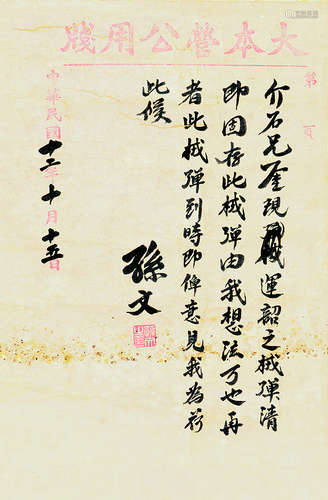 大本營公用牋
第 頁
介石兄鑒現 運韶之械彈請
即固存此械彈由我想法可也再
者此械彈到時即俾意見我為荷
此候
孫文
中華民國十二年十月十五日